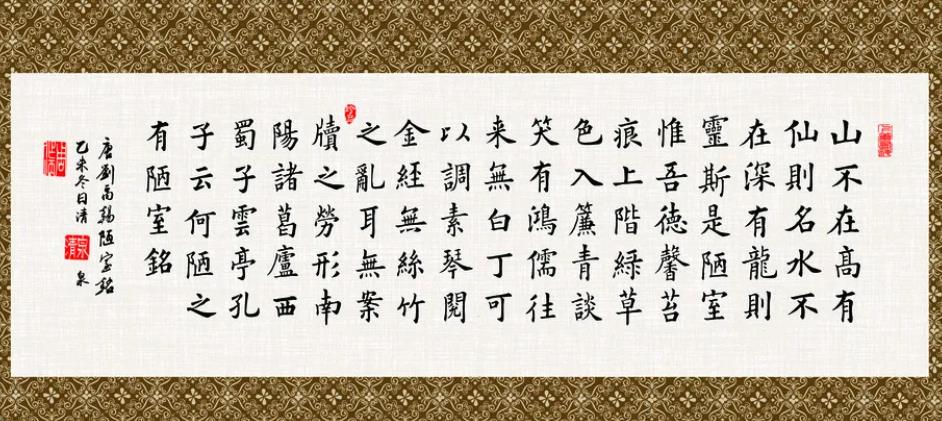 山不在高有
仙則名水不
在深有龍則
靈斯是陋室
惟吾德馨苔
痕上階綠草
色入簾青談
笑有鴻儒往
来無白丁可
以調素琴閱
金經無絲竹
之亂耳無案
牘之勞形南
陽諸葛廬西
蜀子雲亭孔
子云何陋之
有陋室銘
唐劉禹錫陋室銘
乙未冬日清泉